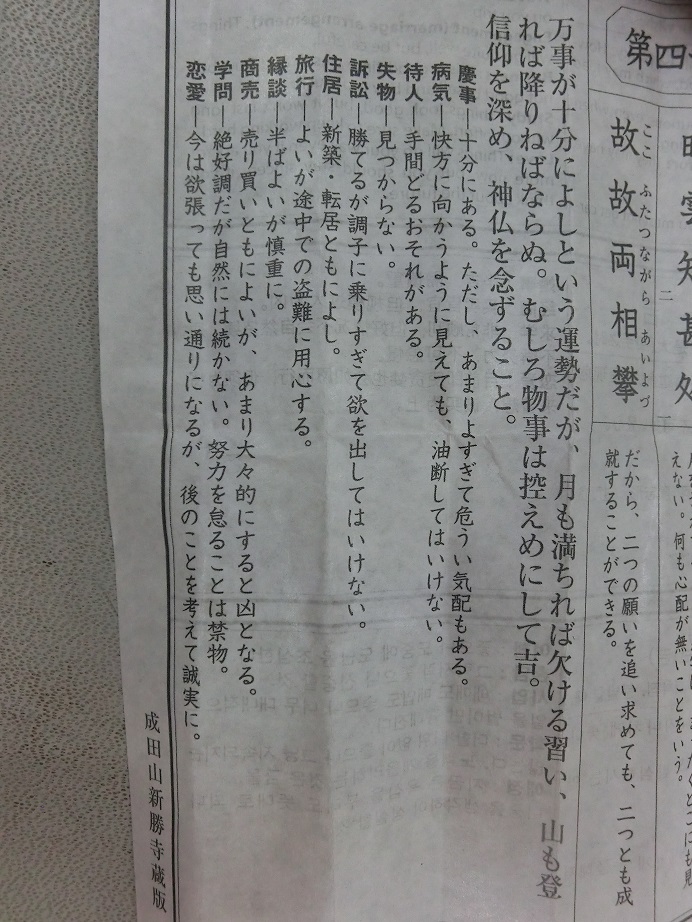 第四
故故両相攀
ここ ふたつながら あいよづ
えない。何も心配が無いことをいう。
だから、二つの願いを追い求めても、二つとも成
就することができる。
万事が十分によしという運勢だが、月も満ちれば欠ける習い、山も登
れば降りねばならぬ。むしろ物事は控えめにして吉。
信仰を深め、神仏を念ずること。
慶事―十分にある。ただし、あまりよすぎて危うい気配もある。
病気―快方に向かうように見えても、油断してはいけない。
待人―手間どるおそれがある。
失物―見つからない。
訴訟―勝てるが調子に乗りすぎて欲を出してはいけない。
住居―新築・転居ともによし。
旅行―よいが途中での盗難に用心する。
縁談―半ばよいが慎重に。
商売―売り買いともによいが、あまり大々的にすると凶となる。
学問―絶好調だが自然には続かない。努力を怠ることは禁物。
恋愛―今は欲張っても思い通りになるが、後のことを考えて誠実に。
成田山新勝寺蔵版